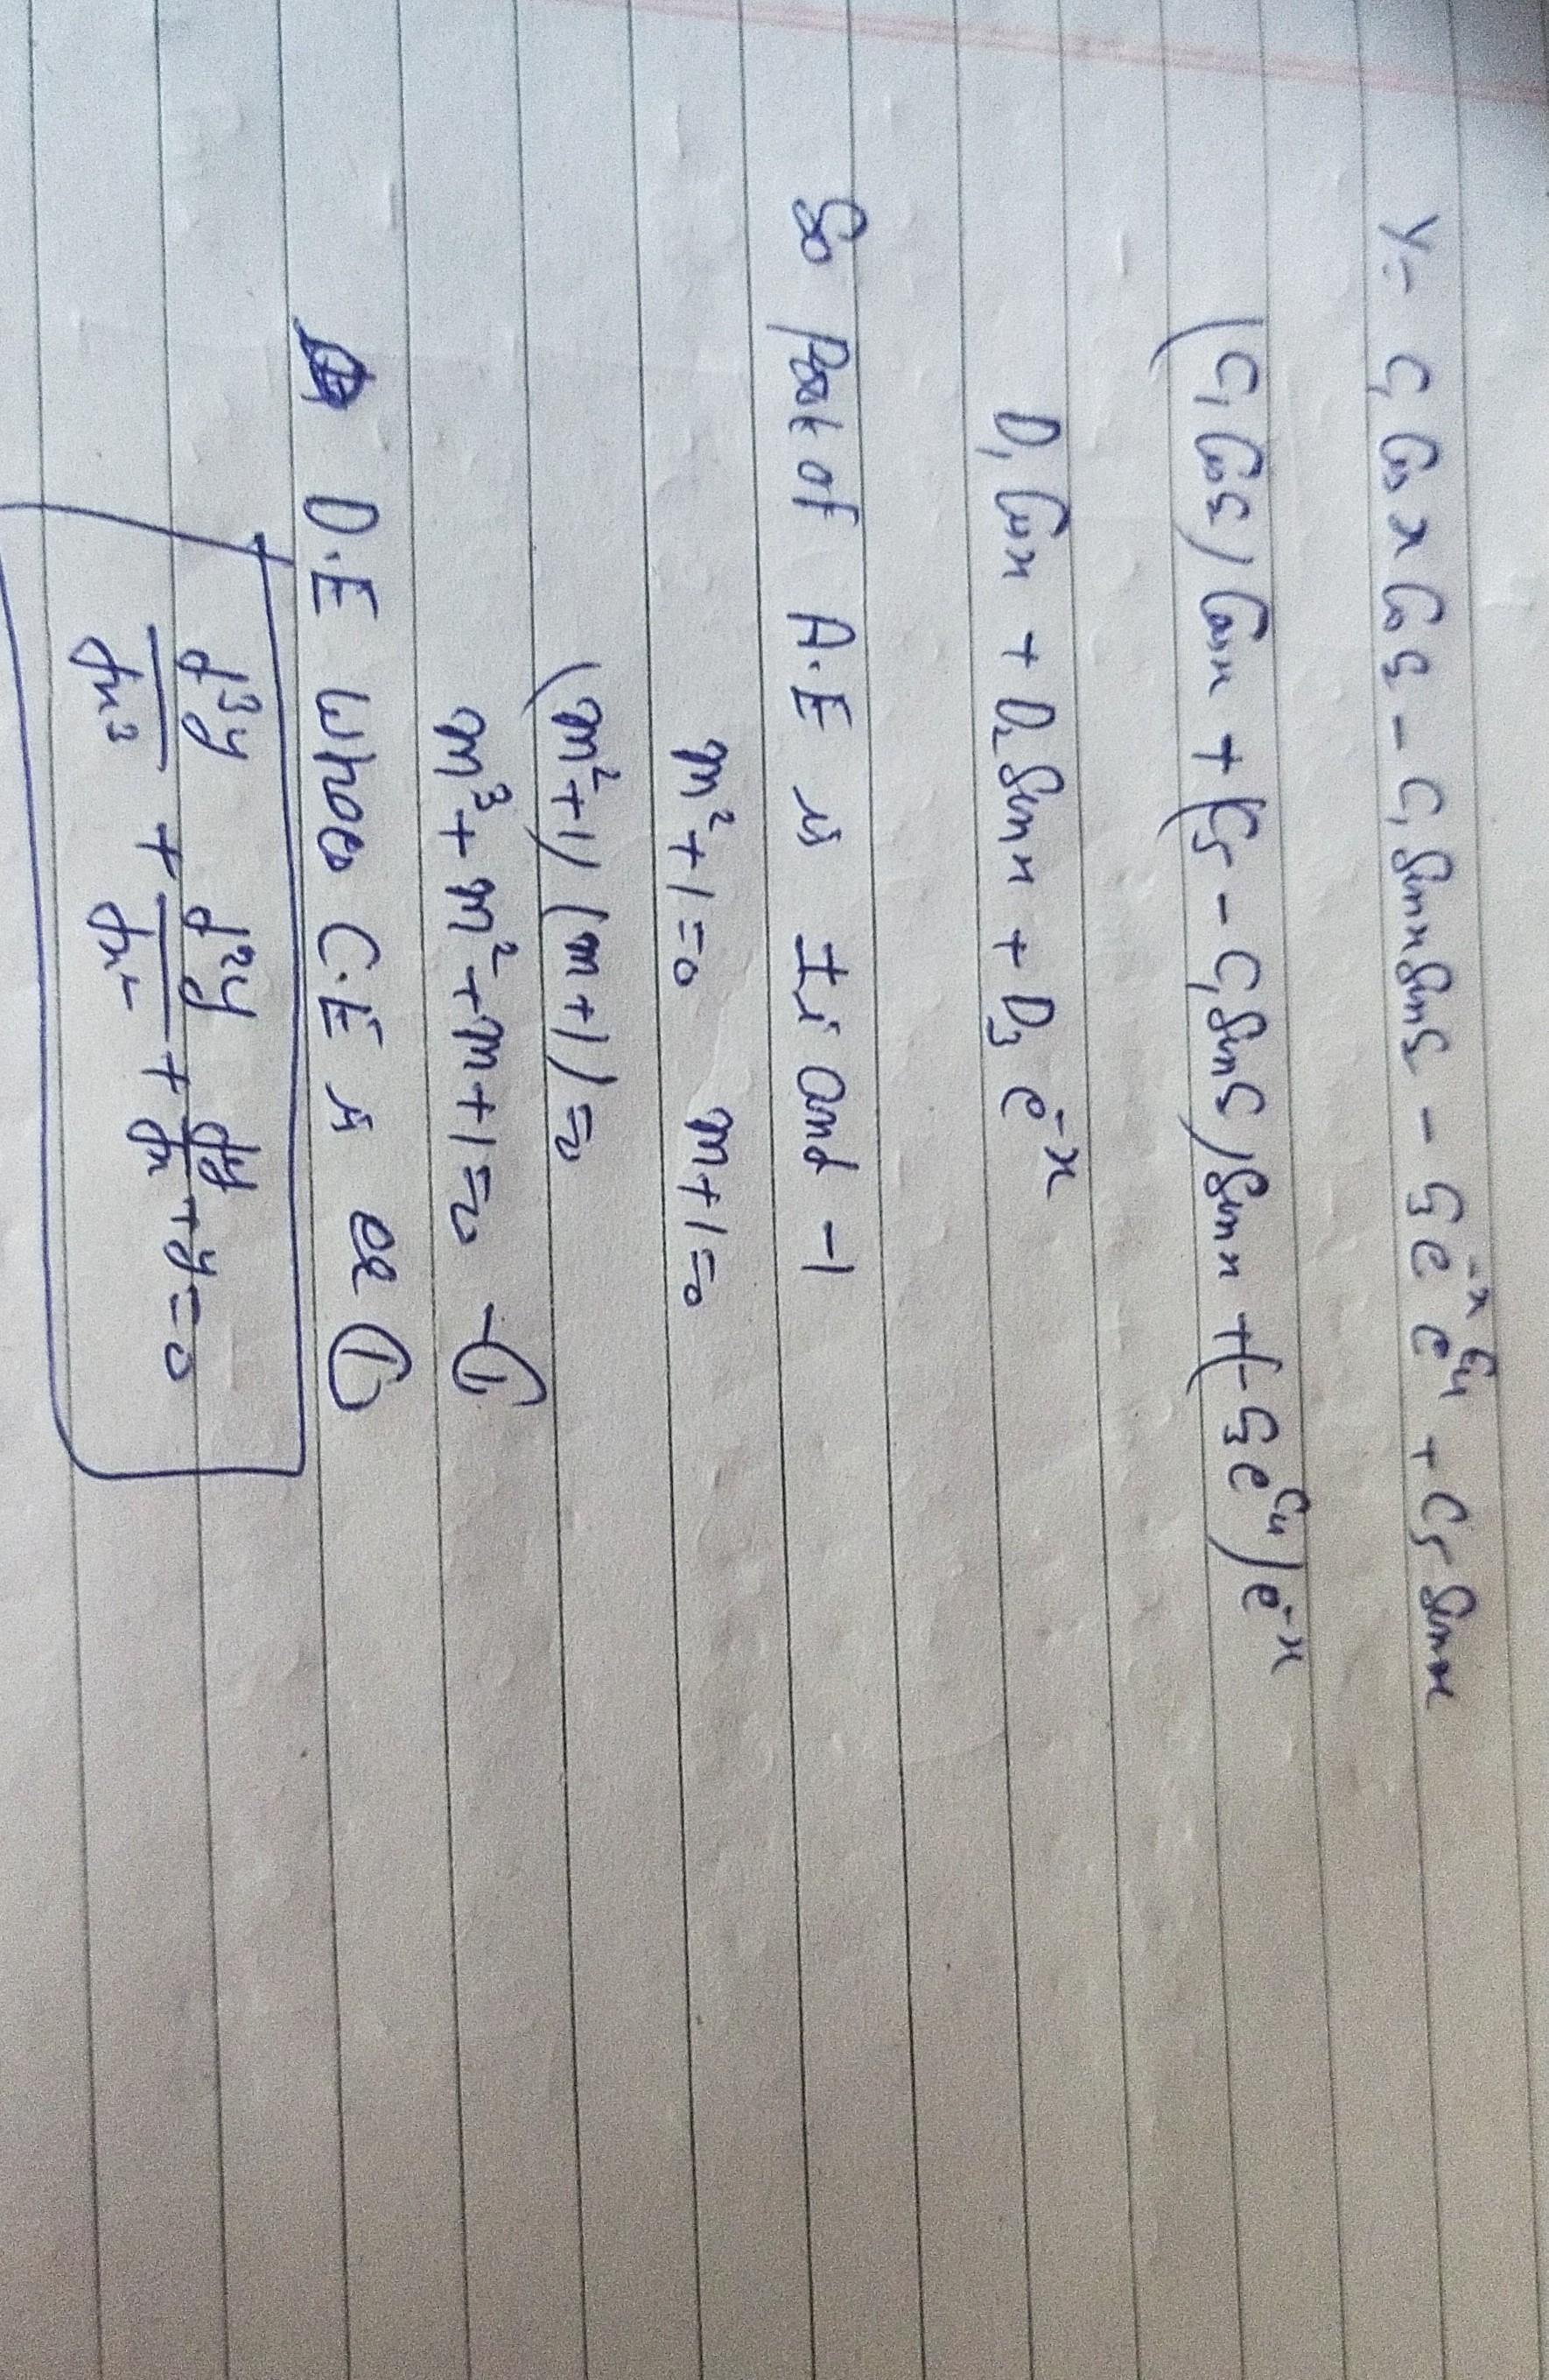 y = C₁ Cos x Cos 5 - C₁ Sin x Sin 5 - C₃ e⁻ˣ e^C₄ + C₅ Sin x
(C₁ Cos 5) Cos x + (C₅ - C₁ Sin 5) Sin x + (-C₃ e^C₄) e⁻ˣ
D₁ Cos x + D₂ Sin x + D₃ e⁻ˣ
So Root of A.E is ± i and -1
m² + 1 = 0 m + 1 = 0
(m² + 1) (m + 1) = 0
m³ + m² + m + 1 = 0 - ①
D.E whose C.E is ①
d³y/dx³ + d²y/dx² + dy/dx + y = 0